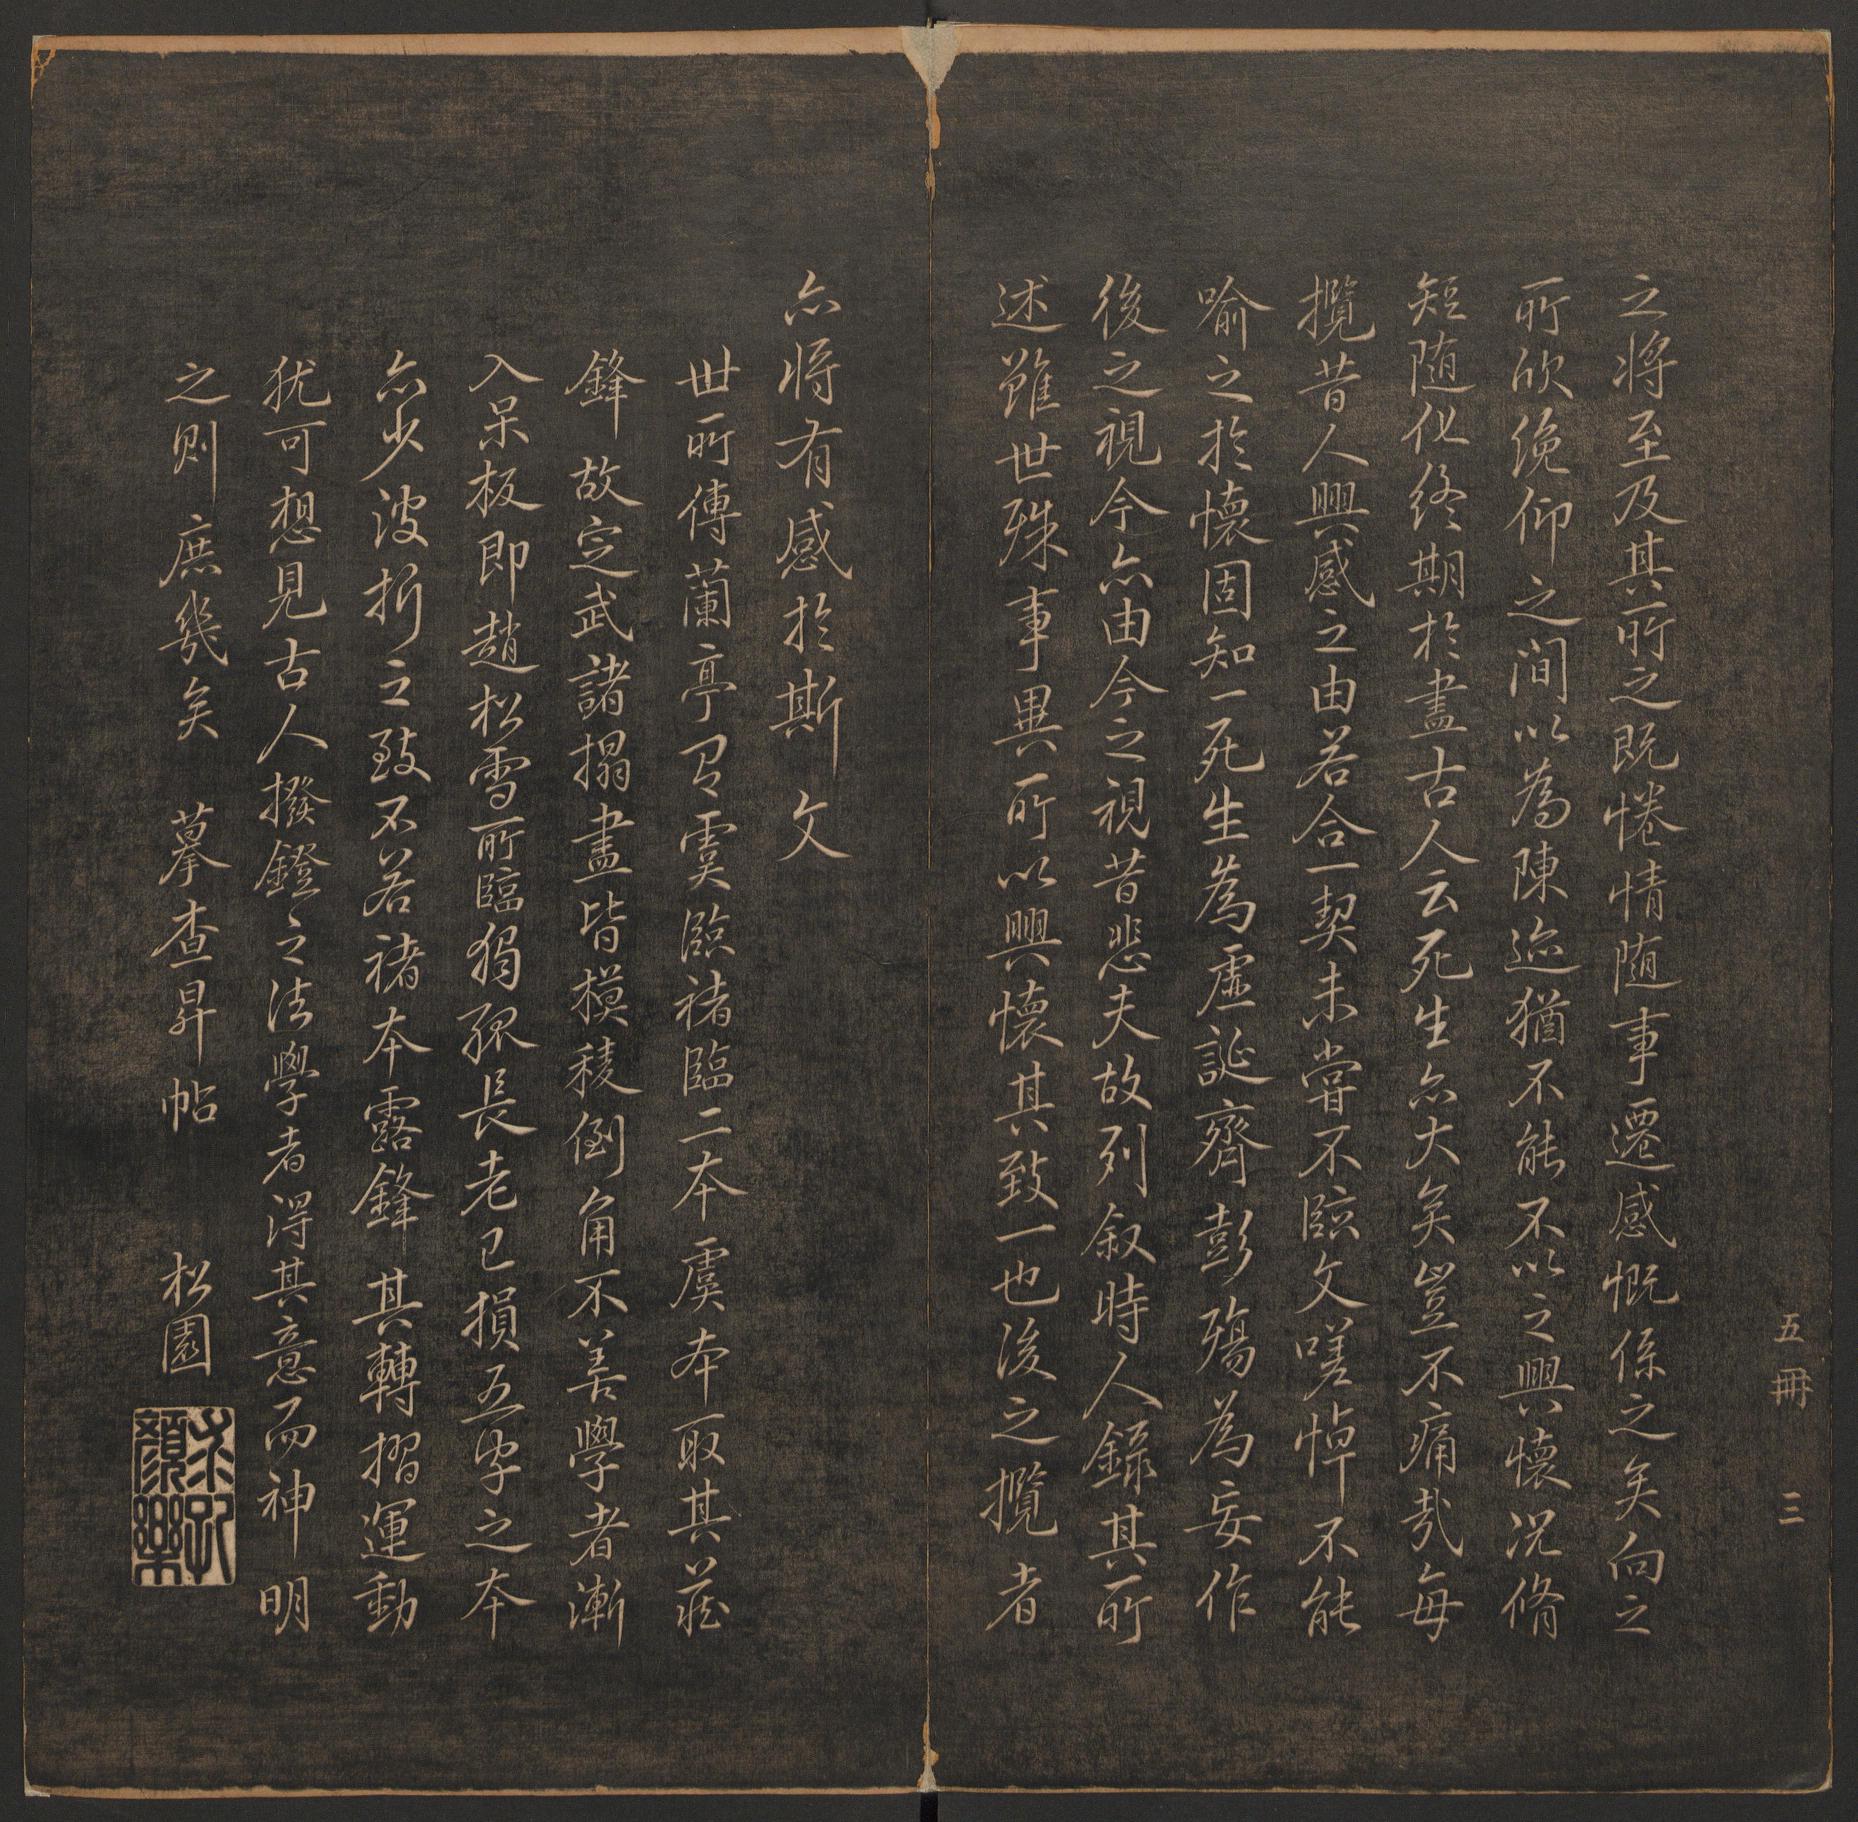 五冊 三
之將至及其所之既惓情随事遷感慨係之矣向之
所欣俛仰之間以為陳迹猶不能不以之興懷況脩
短随化終期於盡古人云死生亦大矣豈不痛哉每
攬昔人興感之由若合一契未嘗不臨文嗟悼不能
喻之於懷固知一死生為虛誕齊彭殤為妄作
後之視今亦由今之視昔悲夫故列叙時人錄其所
述雖世殊事異所以興懷其致一也後之攬者
亦將有感於斯文
世所傳蘭亭有虞臨褚臨二本虞本取其蔵
鋒故定武諸搨盡皆模稜倒角不善學者漸
入呆板即趙松雪所臨獨孤長老已損五字之本
亦少波折之致不若褚本露鋒其轉摺運動
犹可想見古人撥鐙之法學者得其意而神明
之則庶幾矣 摹查昇帖 松園